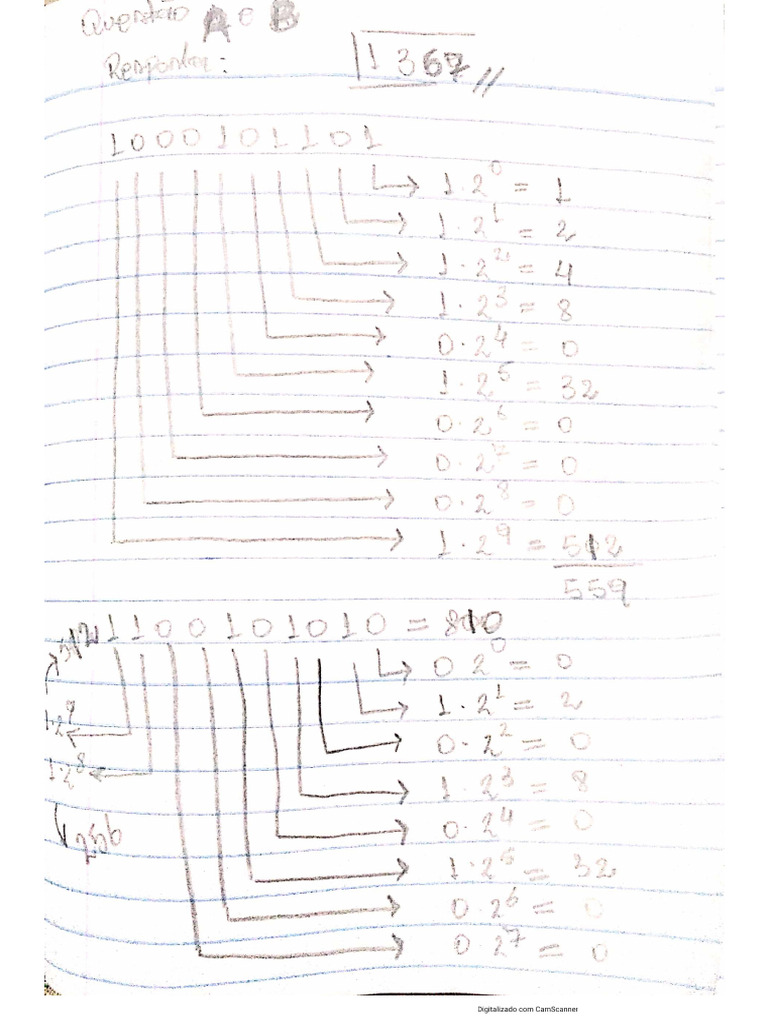 Questão A e B
Resposta: 1367//
1000101101
1·2^0 = 1
1·2^1 = 2
1·2^2 = 4
1·2^3 = 8
0·2^4 = 0
1·2^5 = 32
0·2^6 = 0
0·2^7 = 0
0·2^8 = 0
1·2^9 = 512
559
1100101010 = 810
512
0 2^0 = 0
1·2^1 = 2
1·2^9
0·2^2 = 0
1·2^8
1·2^3 = 8
0·2^4 = 0
256
1·2^5 = 32
0·2^6 = 0
0·2^7 = 0
Digitalizado com CamScanner